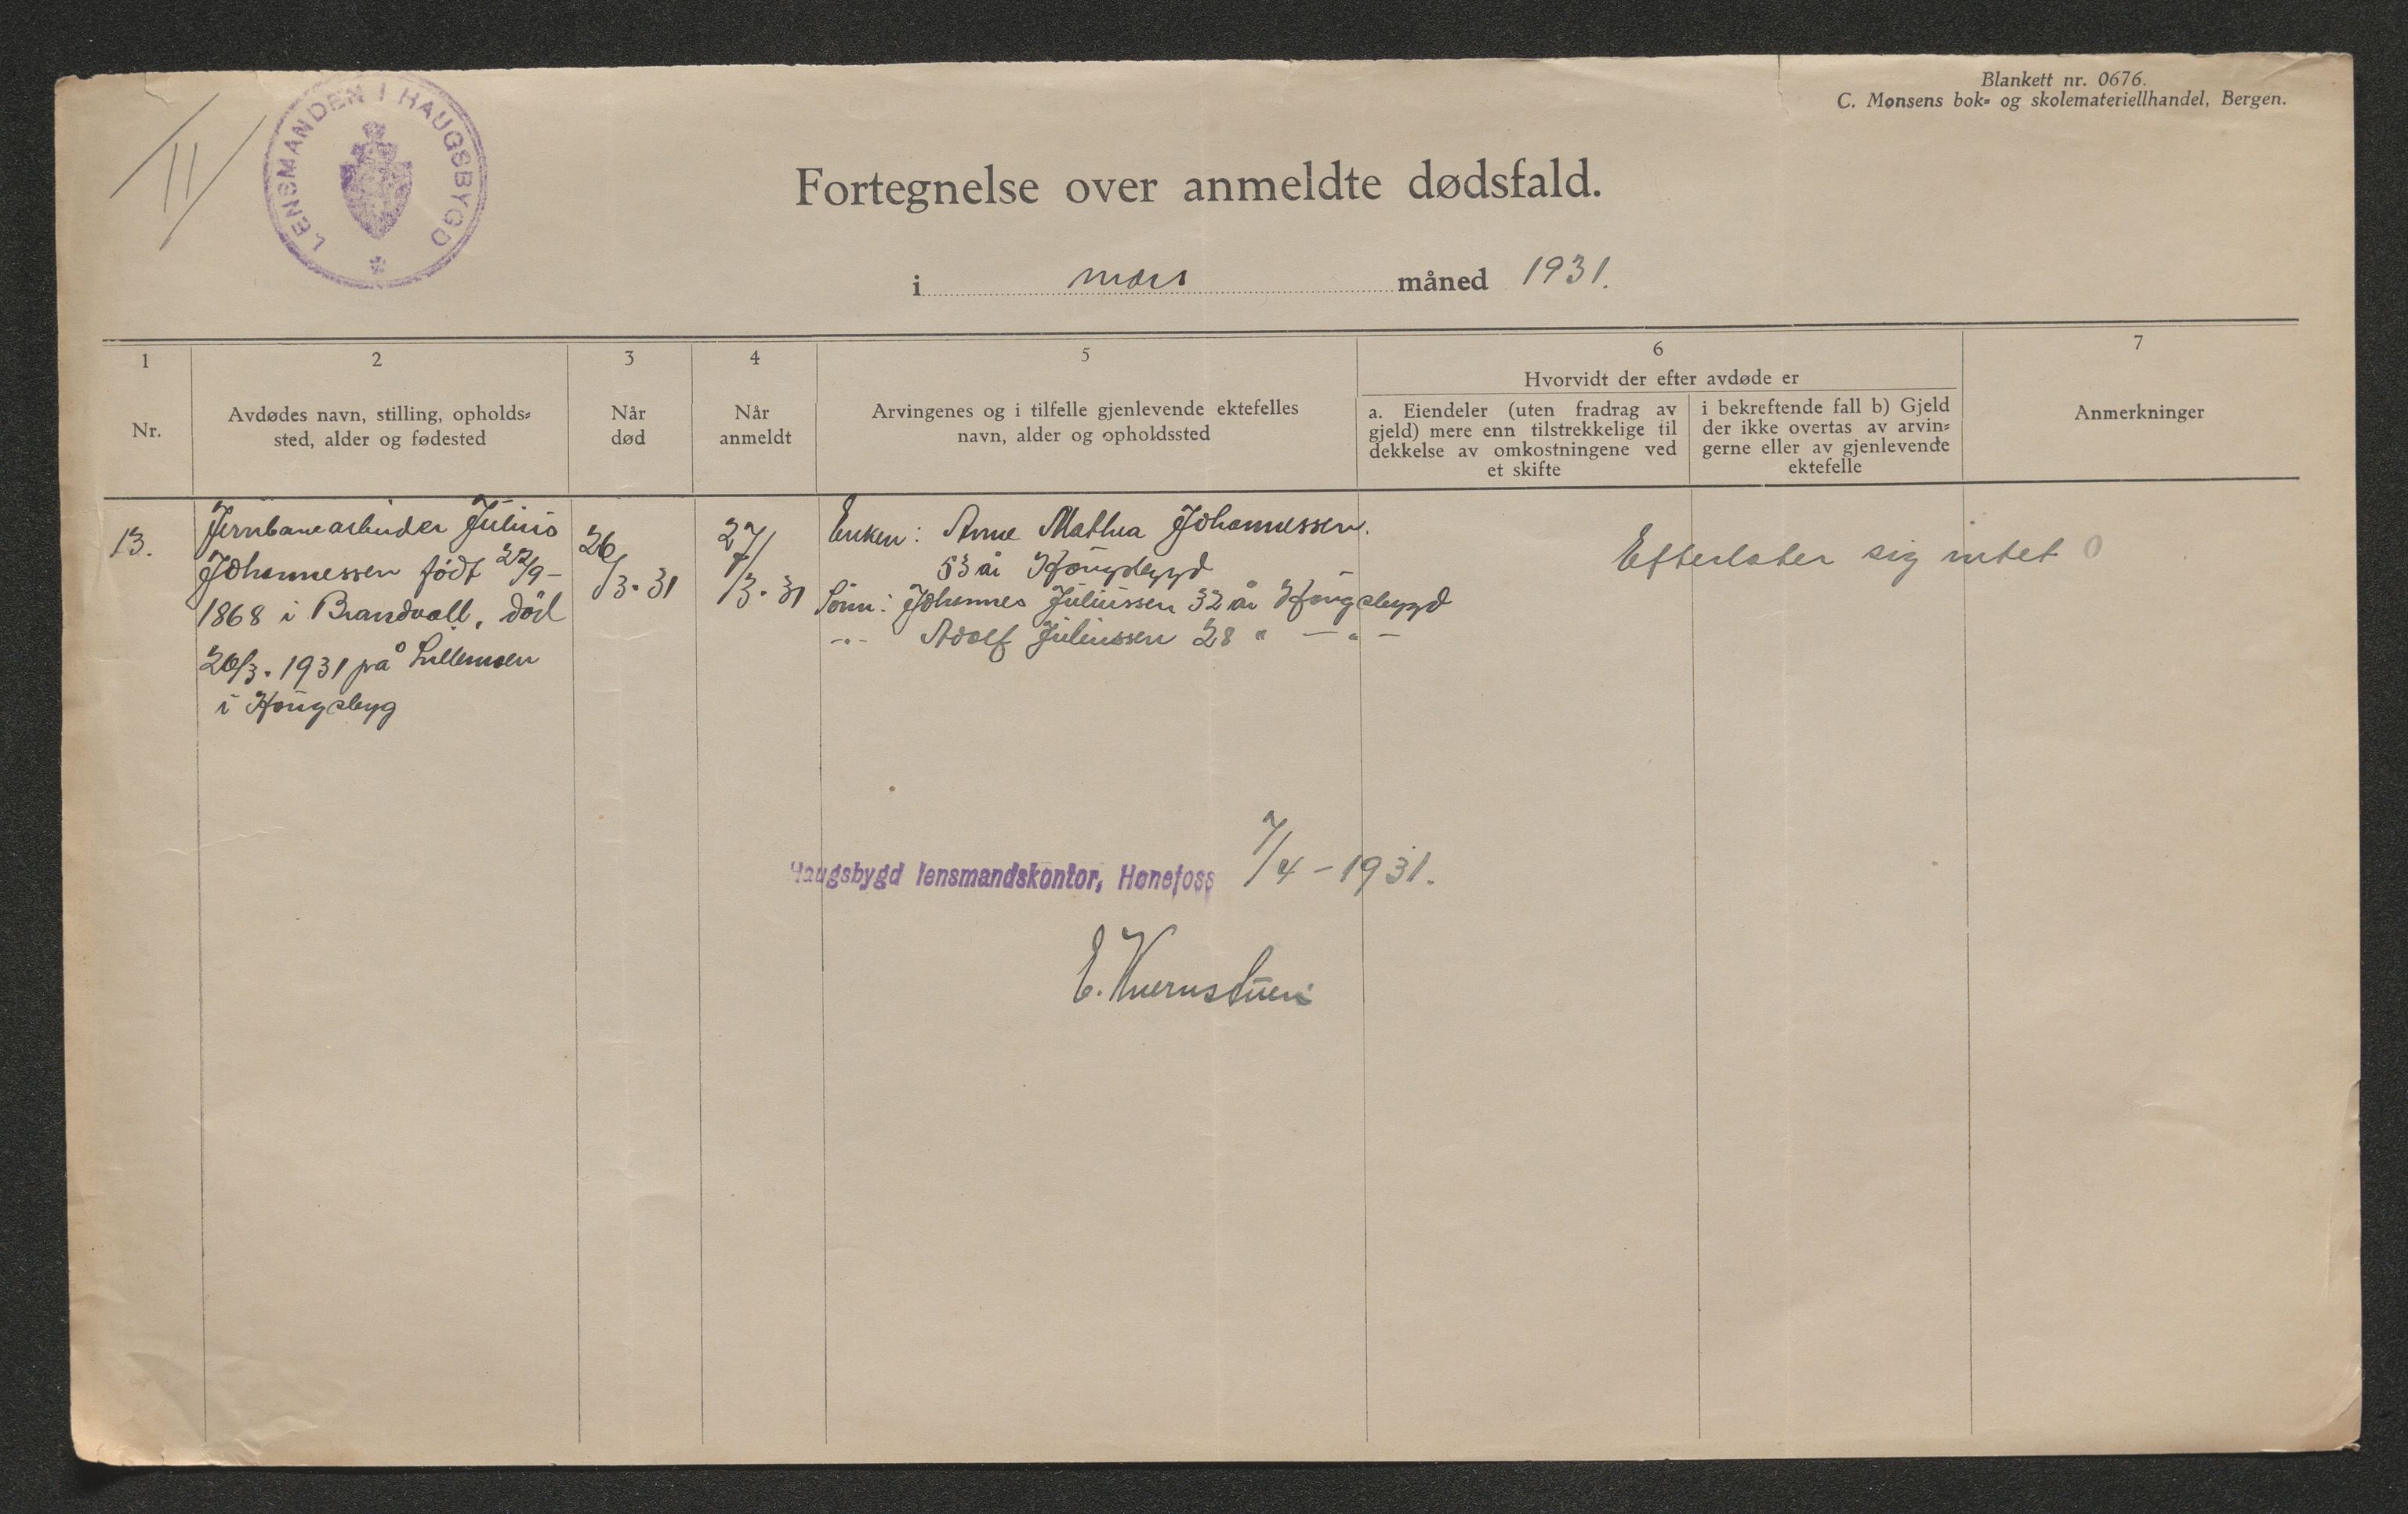 Blankett nr. 0676.
C. Monsens bok- og skolemateriellhandel, Bergen.
II
LENSMANDEN I HAUGSBYGD
Fortegnelse over anmeldte dødsfald.
i mars måned 1931.
1
2
3
4
5
6
7
Nr.
Avdødes navn, stilling, opholds-
sted, alder og fødested
Når
død
Når
anmeldt
Arvingenes og i tilfelle gjenlevende ektefelles
navn, alder og opholdssted
Hvorvidt der efter avdøde er
a. Eiendeler (uten fradrag av
gjeld) mere enn tilstrekkelige til
dekkelse av omkostningene ved
et skifte
i bekreftende fall b) Gjeld
der ikke overtas av arvin-
gerne eller av gjenlevende
ektefelle
Anmerkninger
13.
Jernbanearbeider Julius
Johannessen født 22/9-
1868 i Brandvall, död
26/3. 1931 på Lillemoen
i Haugsbyg
26/3. 31
27/3. 31
Enken: Anne Mathea Johannessen.
53 år Haugsbygd
Sönn: Johannes Juliussen 32 år Haugsbygd
-"- Adolf Juliussen 28 " -"-
Efterlater sig intet 0
Haugsbygd lensmandskontor, Hønefoss 7/4 - 1931.
E. Kvernstuen